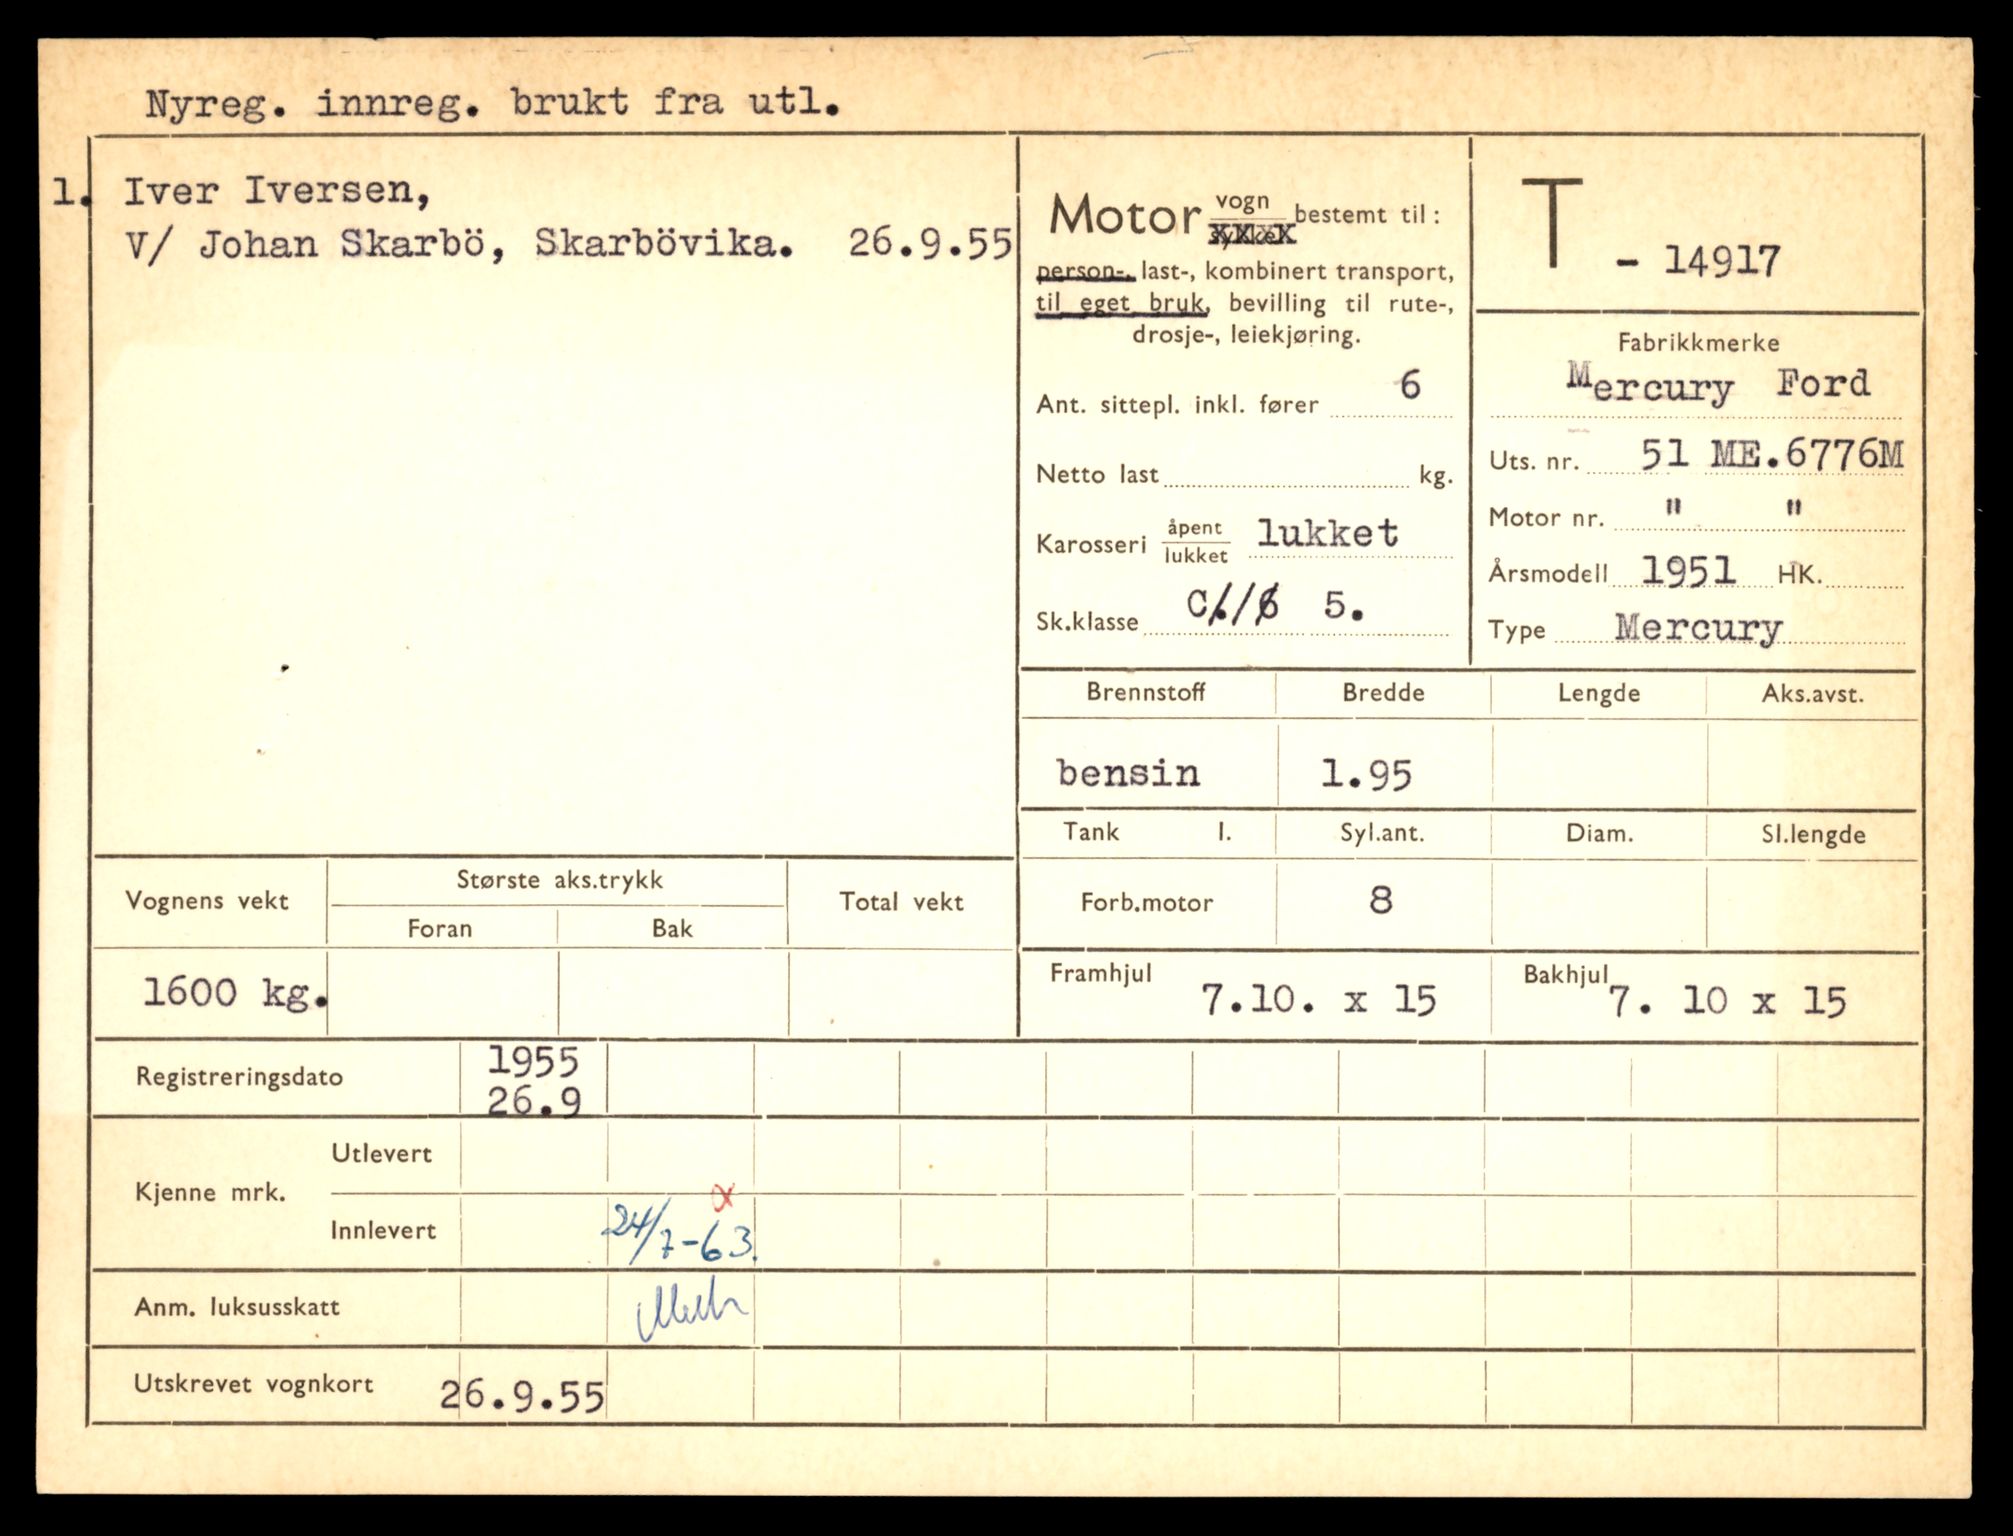 Nyreg. innreg. brukt fra utl.
1. Iver Iversen,
V/ Johan Skarbö, Skarbövika. 26.9.55
Motor vogn bestemt til:
person-, last-, kombinert transport,
til eget bruk, bevilling til rute-,
drosje-, leiekjøring.
Ant. sittepl. inkl. fører 6
Netto last kg.
Karosseri åpent lukket lukket
Sk.klasse 5.
T - 14917
Fabrikkmerke
Mercury Ford
Uts. nr. 51 ME.6776M
Motor nr. " "
Årsmodell 1951 HK.
Type Mercury
Brennstoff Bredde Lengde Aks.avst.
bensin 1.95
Tank l. Syl.ant. Diam. Sl.lengde
Forb.motor 8
Framhjul 7.10. x 15 Bakhjul 7. 10 x 15
Vognens vekt Største aks.trykk Total vekt
Foran Bak
1600 kg.
Registreringsdato 1955
26.9
Kjenne mrk. Utlevert
Innlevert 24/7-63. x
Anm. luksusskatt
Utskrevet vognkort 26.9.55